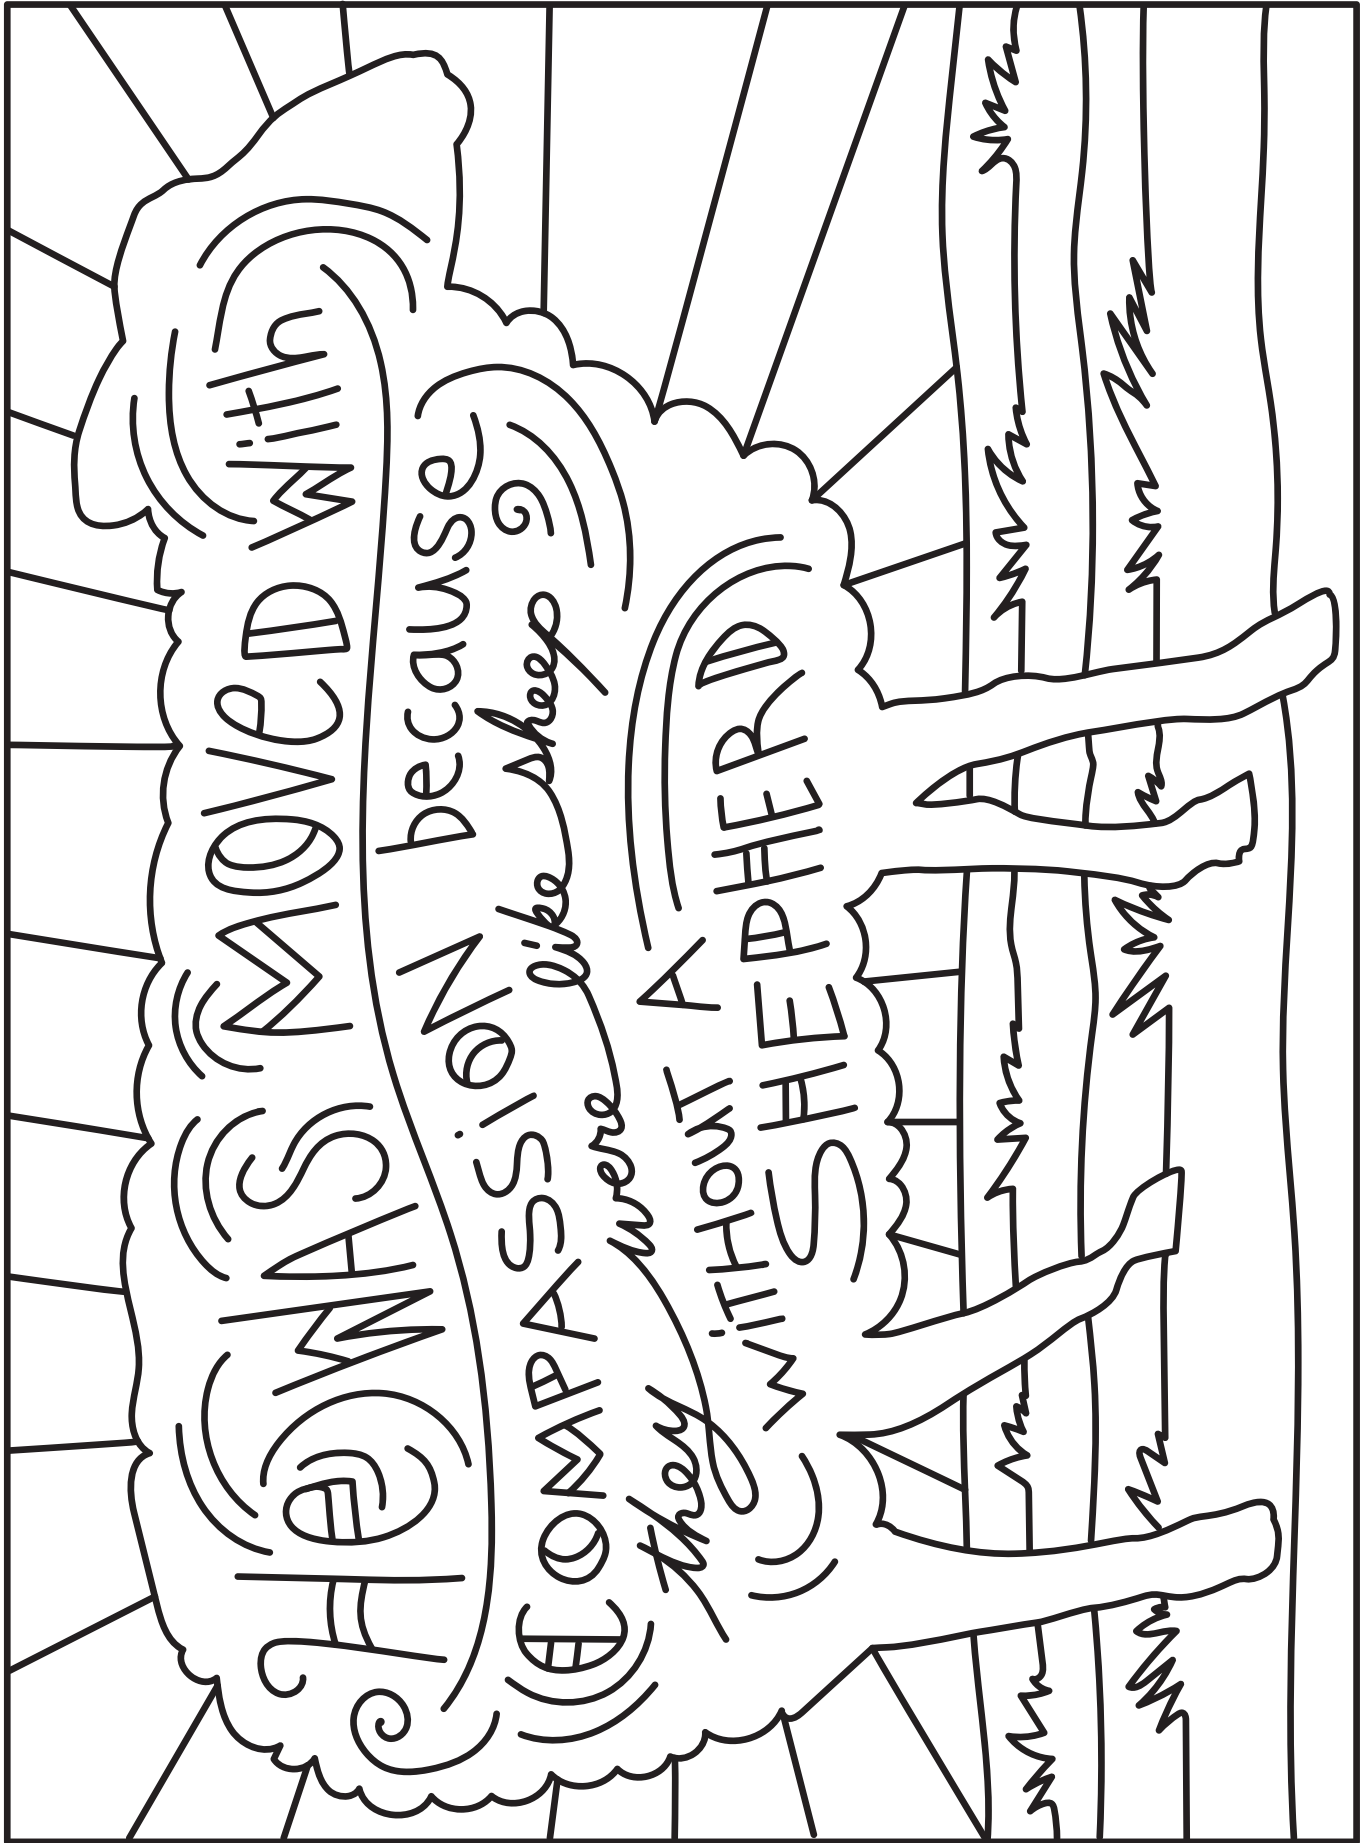 He WAS MOVeD with
COMPASSiON because
they were like sheep
WiTHOuT A
SHEPHERD